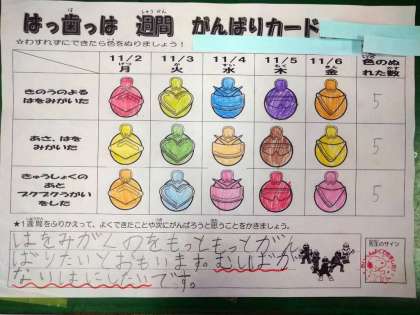 はっ歯っは 週間 がんばりカード
☆わすれずにできたら色をぬりましょう！
11/2 11/3 11/4 11/5 11/6 色のぬれた数
月 火 水 木 金
きのうのよるはをみがいた 5
あさ、はをみがいた 5
きゅうしょくのあとブクブクうがいをした 5
★1週間をふりかえって、よくできたことや次にがんばろうと思うことをかきましょう。
はをみがくのをもっともっとがん
ばりたいとおもいます。むしばが
ないはにしたいです。
先生のサイン